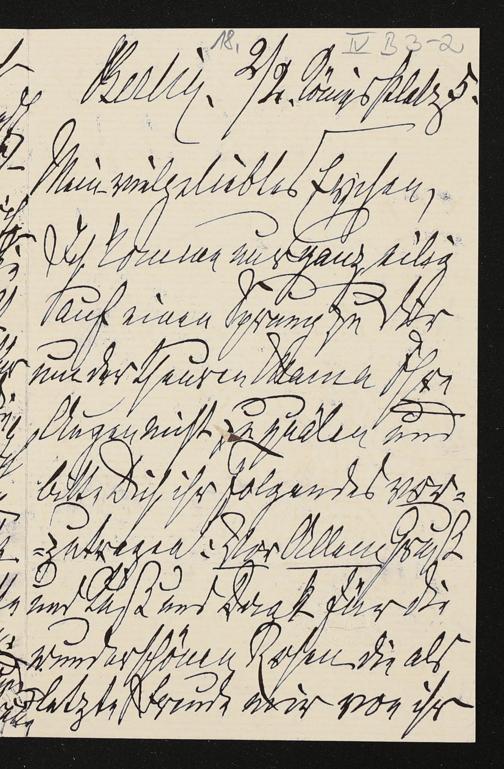 18. IV B 3-2
Berlin. 2/2. Königsplatz 5.
Mein vielgeliebtes Evchen,
Ich komme nur ganz eilig
auf einen Sprung zu Dir
um der theuren Mama Ihre
Augen nicht zu quälen und
bitte Dich ihr Folgendes vor-
=zutragen: Vor Allem Gruß
und Kuß und Dank für die
wunderschönen Rosen die als
letzte Freude mir von ihr